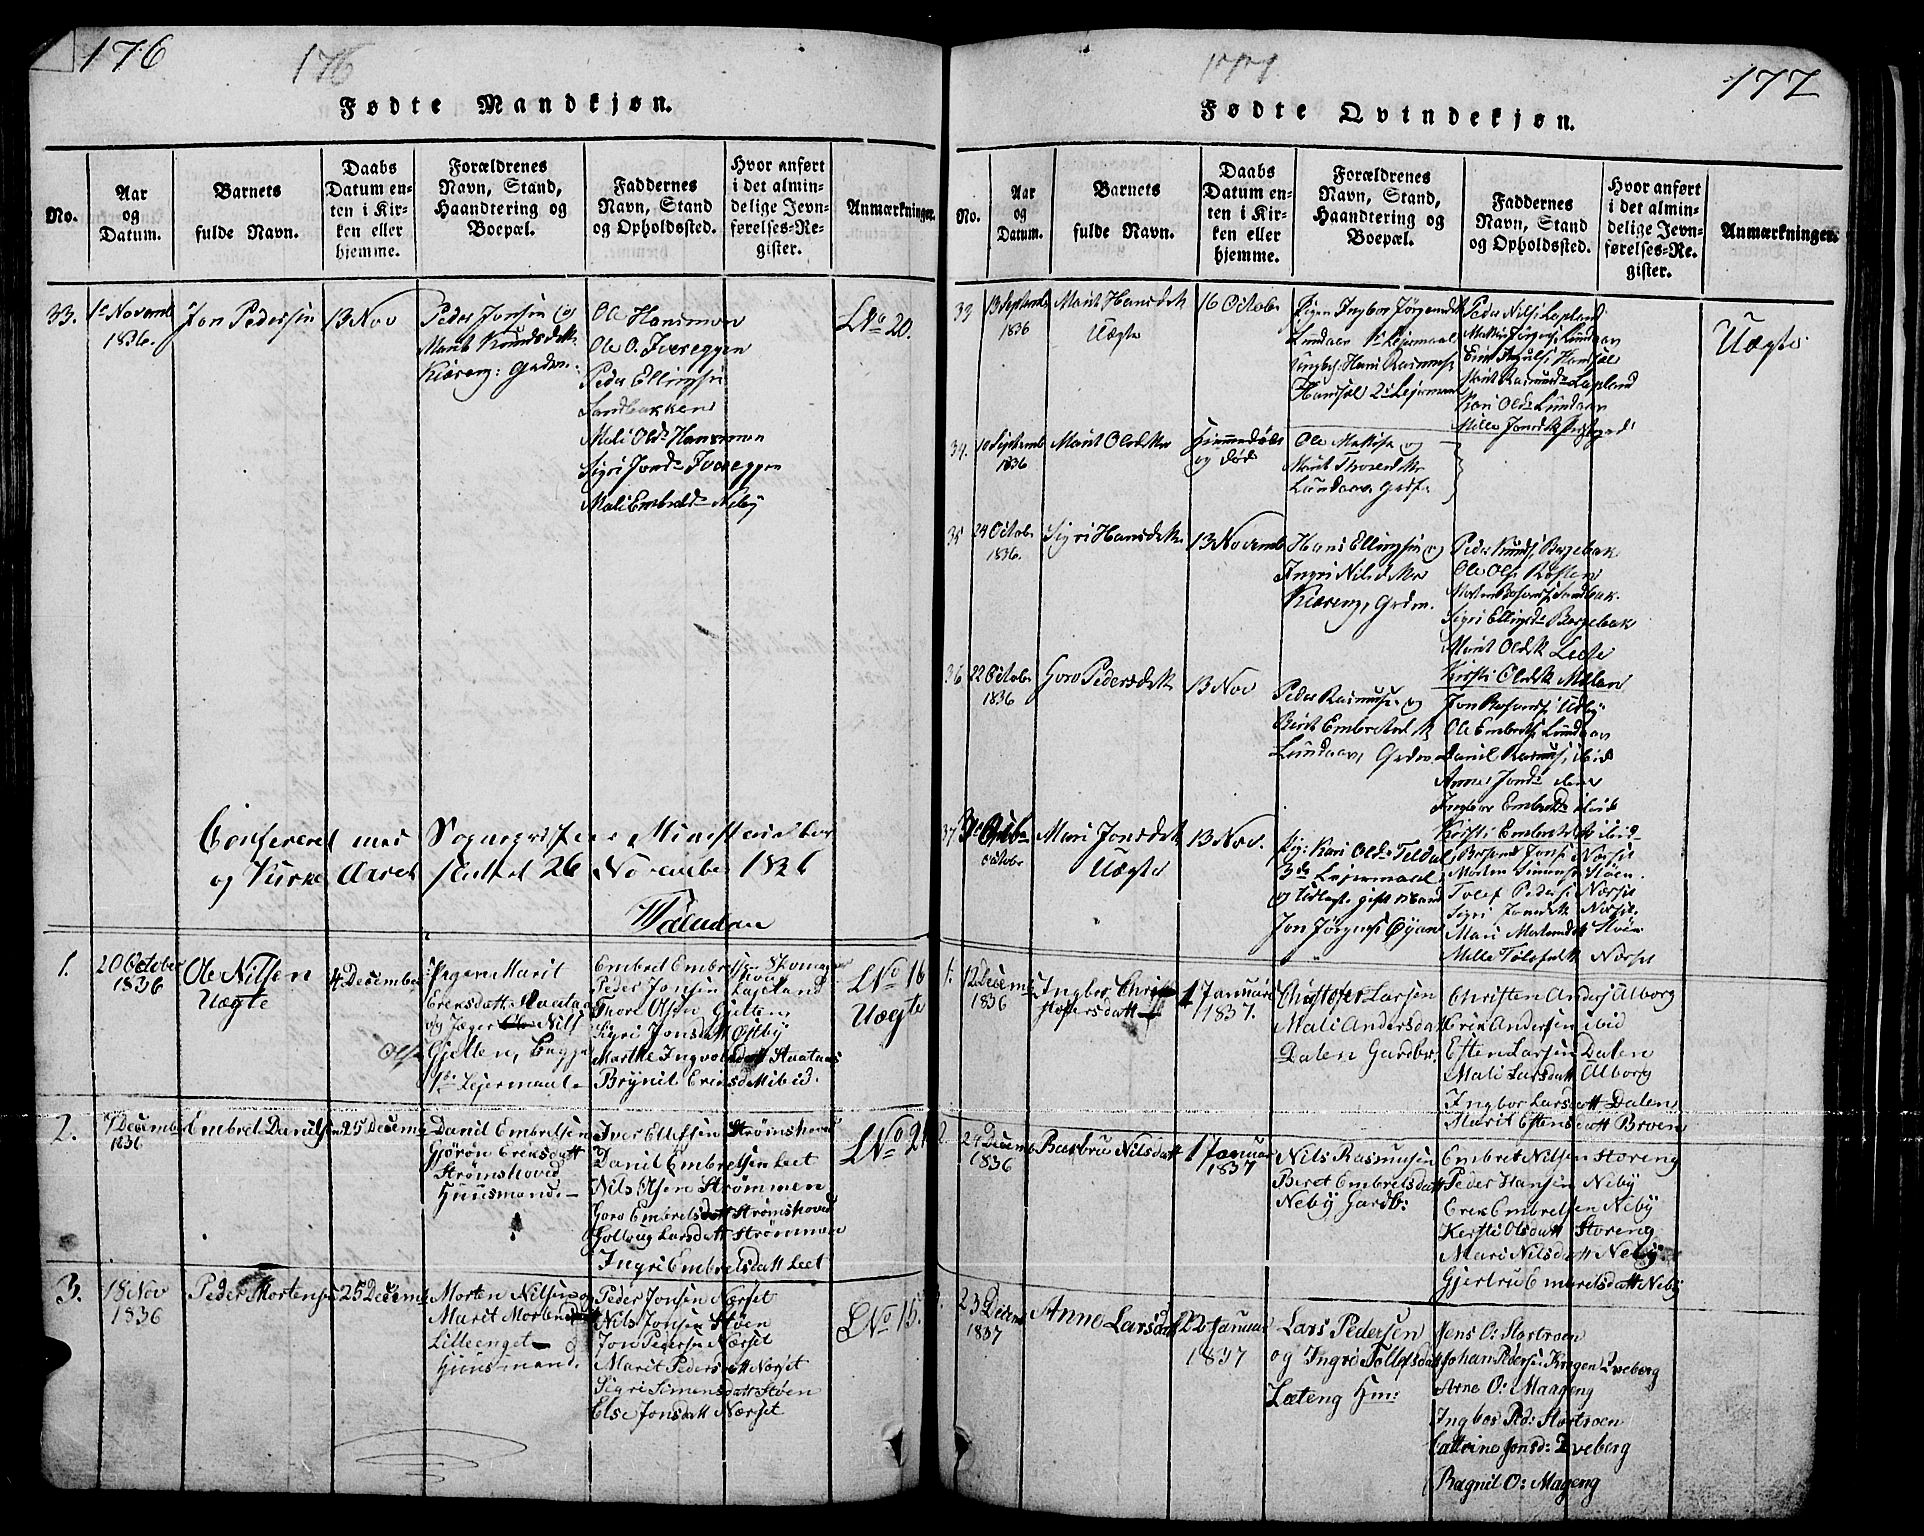 176
176
Fødte Mandkjøn.
No.
Aar
og
Datum.
Barnets
fulde Navn.
Daabs
Datum en-
ten i Kir-
ken eller
hjemme.
Forældrenes
Navn, Stand,
Haandtering og
Boepæl.
Faddernes
Navn, Stand
og Opholdssted.
Hvor anført
i det almin-
delige Jevn-
førelses-Re-
gister.
Anmærkninger.
33.
1te Novemb
1836.
Jon Pedersen
13 Nov
Peder Jonsen og
Marit Knudsdtr
Kiæreng: Grdm.
Ole Hansmon
Ole O. Ivereggen
Peder Ellingsen
Sandbakken
Mali Olsd Hansmon
Sigri Jonsd Ivereggen
Mali Embretsd Neby
LNo 20.
Confereret med Sogneprestens Ministerialbog
og Kirke Aaret sluttet 26 November 1836
1.
20 October
1836
Ole Nilsen
Uægte
4 December
Pigen Marit
Eriksdatt
og Ole Nils
Olsen
Gjelten, begge
1te Lejermaal
Peder Jonsen Lapeland
Thore Olsen Gjelten
Sigri Jonsdatt Østby
Marthe Ingvolsdatt
Brynil Eriksdatt ibid.
LNo 16
Uægte
2.
7 December
1836
Embret Danilsen
25 Decemb
Danil Embretsen
Gjørøn Eriksdatt
Strømshoved
Huusmand
Iver Ellefsen Strømshoved
Danil Embretsen Leet
Nils Olsen Strømmen
Goro Embretsdatt Strømshoved
Golvug Larsdatt Strømmen
Ingri Embretsdatt Leet
LNo 21
3.
18 Nov
1836
Peder Mortensen
25 Decemb
Morten Nilsen og
Marit Morten
Lilleenget
Huusmand.
Peder Jonsen Nørset
Nils Jonsen Støen
Jon Pedersen Nørset
Marit Pedersdatt Nørset
Sigri Simensdatt Støen
Else Jonsdatt Nørset
LNo 15.
177
177
Fødte Qvindekjøn.
No.
Aar
og
Datum.
Barnets
fulde Navn.
Daabs
Datum en-
ten i Kir-
ken eller
hjemme.
Forældrenes
Navn, Stand,
Haandtering og
Boepæl.
Faddernes
Navn, Stand
og Opholdssted.
Hvor anført
i det almin-
delige Jevn-
førelses-Re-
gister.
Anmærkninger.
33
13 Septemb
1836
Marit Hansdtr
Uægte
16 Octobr
Pigen Ingbor Jørgensdtr
Lundaaen 1te Lejermaal
Ungk: Hans Rasmuss
Hamsøe 2de Lejermaal
Peder Nilss Lapeland
Marit Rasmusd Lapeland
Kari Olsd Lundaaen
Mille Jonsdtr
Uægte
34.
10 Septemb
1836
Marit Olsdtr
Hiemmedøbt
og død
Ole Mathis og
Marit Thoresdtr
Lundaaen Grdfo
35
24 Octobr
1836.
Sigri Hansdtr
13 Novemb
Hans Ellingsen og
Ingri Nilsdtr
Kiæreng, Grdm.
Peder Knuds Bergebak
Ole Ols Røsten
Sigri Ellingsd Bergebak
Marit Olsdtr Leete
Kirsti Olsdtr Moloen
36
22 Octobr
1836
Goro Pedersdtr
13 Nov
Peder Rasmuss og
Berit Embretsd
Lundaaen, Grdm
Ole Embrets Lundaaen
Danil Rasmuss ibid
Anne Jonsd
Ingbor Embretsd ibid
Kirsti Embretsdtr ibid
37
October
Mari Jonsdtr
Uægte
13 Nov.
Pig: Kari Olsd Teldal
3de Lejermaal
og Udlagte gift Mand
Jon Jørgens Øyan
Morten Simens Støen
Tolef Peders Nørset
Sigri Jonsdtr Nørset
Mari Mortensdtr Støen
Mille Tolefsdtr Nørset
1.
12 Decemb
1836
Ingbor Chris
tophersdatt
1 Januari
1837.
Christoffer Larsen
Mali Andersdatt
Dalen Gardbr
Christen Anders Alborg
Erik Andersen ibid
Esten Larsen Dalen
Mali Larsdatt Alborg
Ingbor Larsdatt Dalen
Marit Estensdatt Broen
2.
24 Decemb
1836
Barbru Nilsdatt
1 Januar
1837
Nils Rasmusen
Beret Embretsdatt
Neby Gardb:
Embret Nilsen Storeng
Peder Hansen Neby
Erik Embretsen Neby
Kersti Olsdatt Storeng
Mari Nilsdatt Neby
Gjertru Embretsdatt Neby
23 Decem
1837
Anne Larsdatt
22 Januar
1837
Lars Pedersen
og Ingri Tollefsdatt
Læteng Hm:
Jens O: Stortroen
Johan Peders: Krogen Tveberg
Arne O: Maageng
Ingbor Ped: Stortroen
Cattrine Jonsd: Tveberg
Ragnil O: Mageng